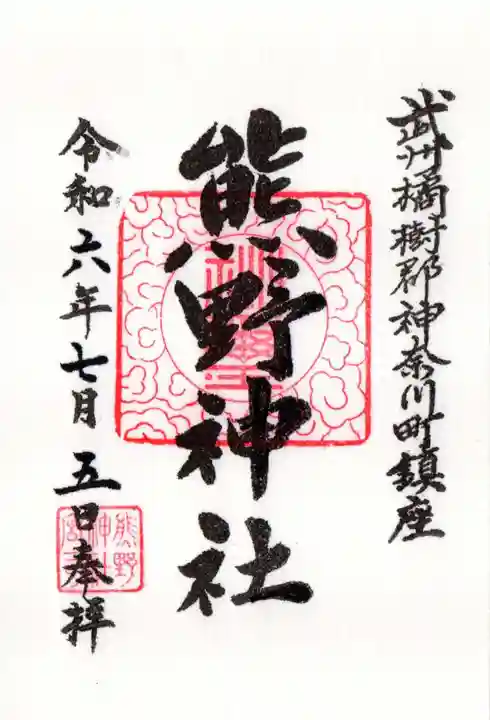 武州橘樹郡神奈川町鎮座
熊野神社
令和六年七月五日奉拝
熊野
神社
宮司